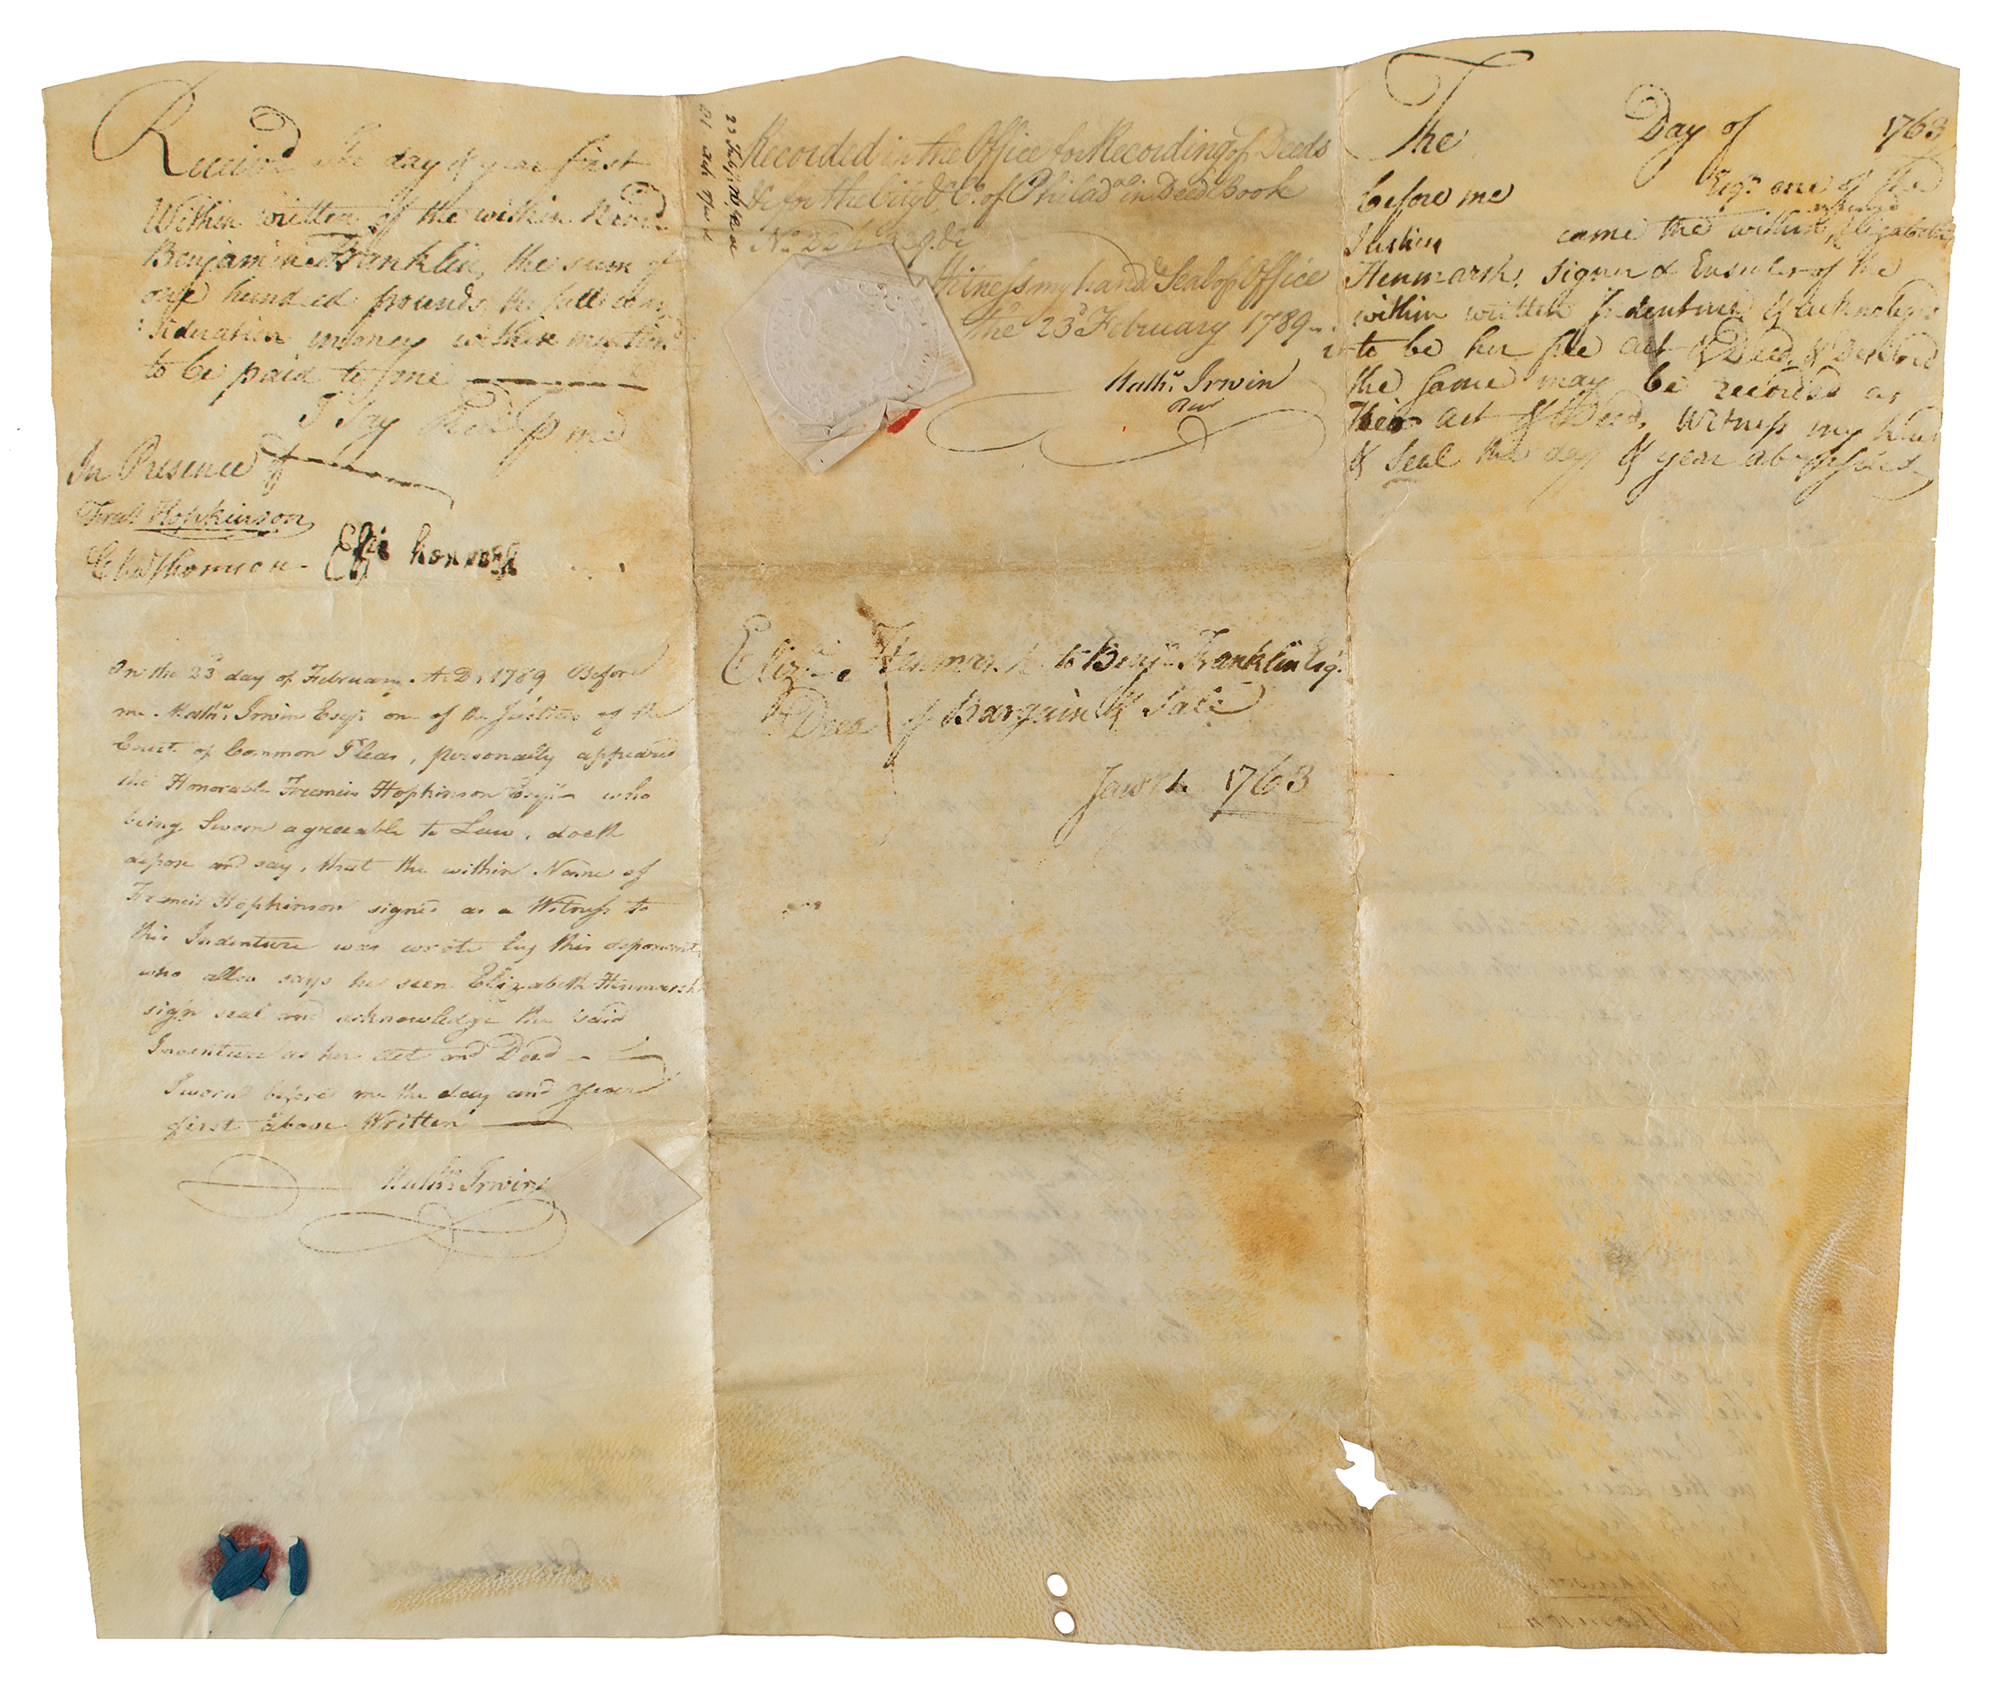 Received the day & year first
Within written of the within Named
Benjamin Franklin, the sum of
one hundred pounds, the full con
:sideration money within mention'd
to be paid to me
I Say Rec'd p me
In Presence of
Fras Hopkinson
Chas Thomson
Eliz henmarsh
On the 23d day of February A.D. 1789 Before
me Mathw Irwin Esqr one of the Justices of the
Court of Common Pleas, personally appeared
the Honorable Francis Hopkinson Esqr who
being Sworn agreeable to Law, doth
depose and say, that the within Name of
Francis Hopkinson signed as a Witness to
this Indenture was wrote by this deponent
who allso says he seen Elizabeth Henmarsh
sign seal and acknowledge the said
Indenture as her Act and Deed
Sworn before me the day and year
first above Written
Mathw Irwin
23 Feby
Recorded in the Office for Recording of Deeds
&c for the City & Co. of Philada in Deed Book
No. 22
Witness my hand & Seal of Office
the 23d February 1789
Mathw Irwin
Recr
Eliz Henmarsh to Benjn Franklin Esqr.
Deed of Bargain & Sale
1763
The Day of 1763
before me Esqr one of the
Justices came the within Elizabeth
Henmarsh, signer & Ensealer of the
within written Indenture & acknowledged
it to be her free act & Deed, & Desired
the same may be recorded as
act & Deed. Witness my hand
& Seal the day & year abovesaid